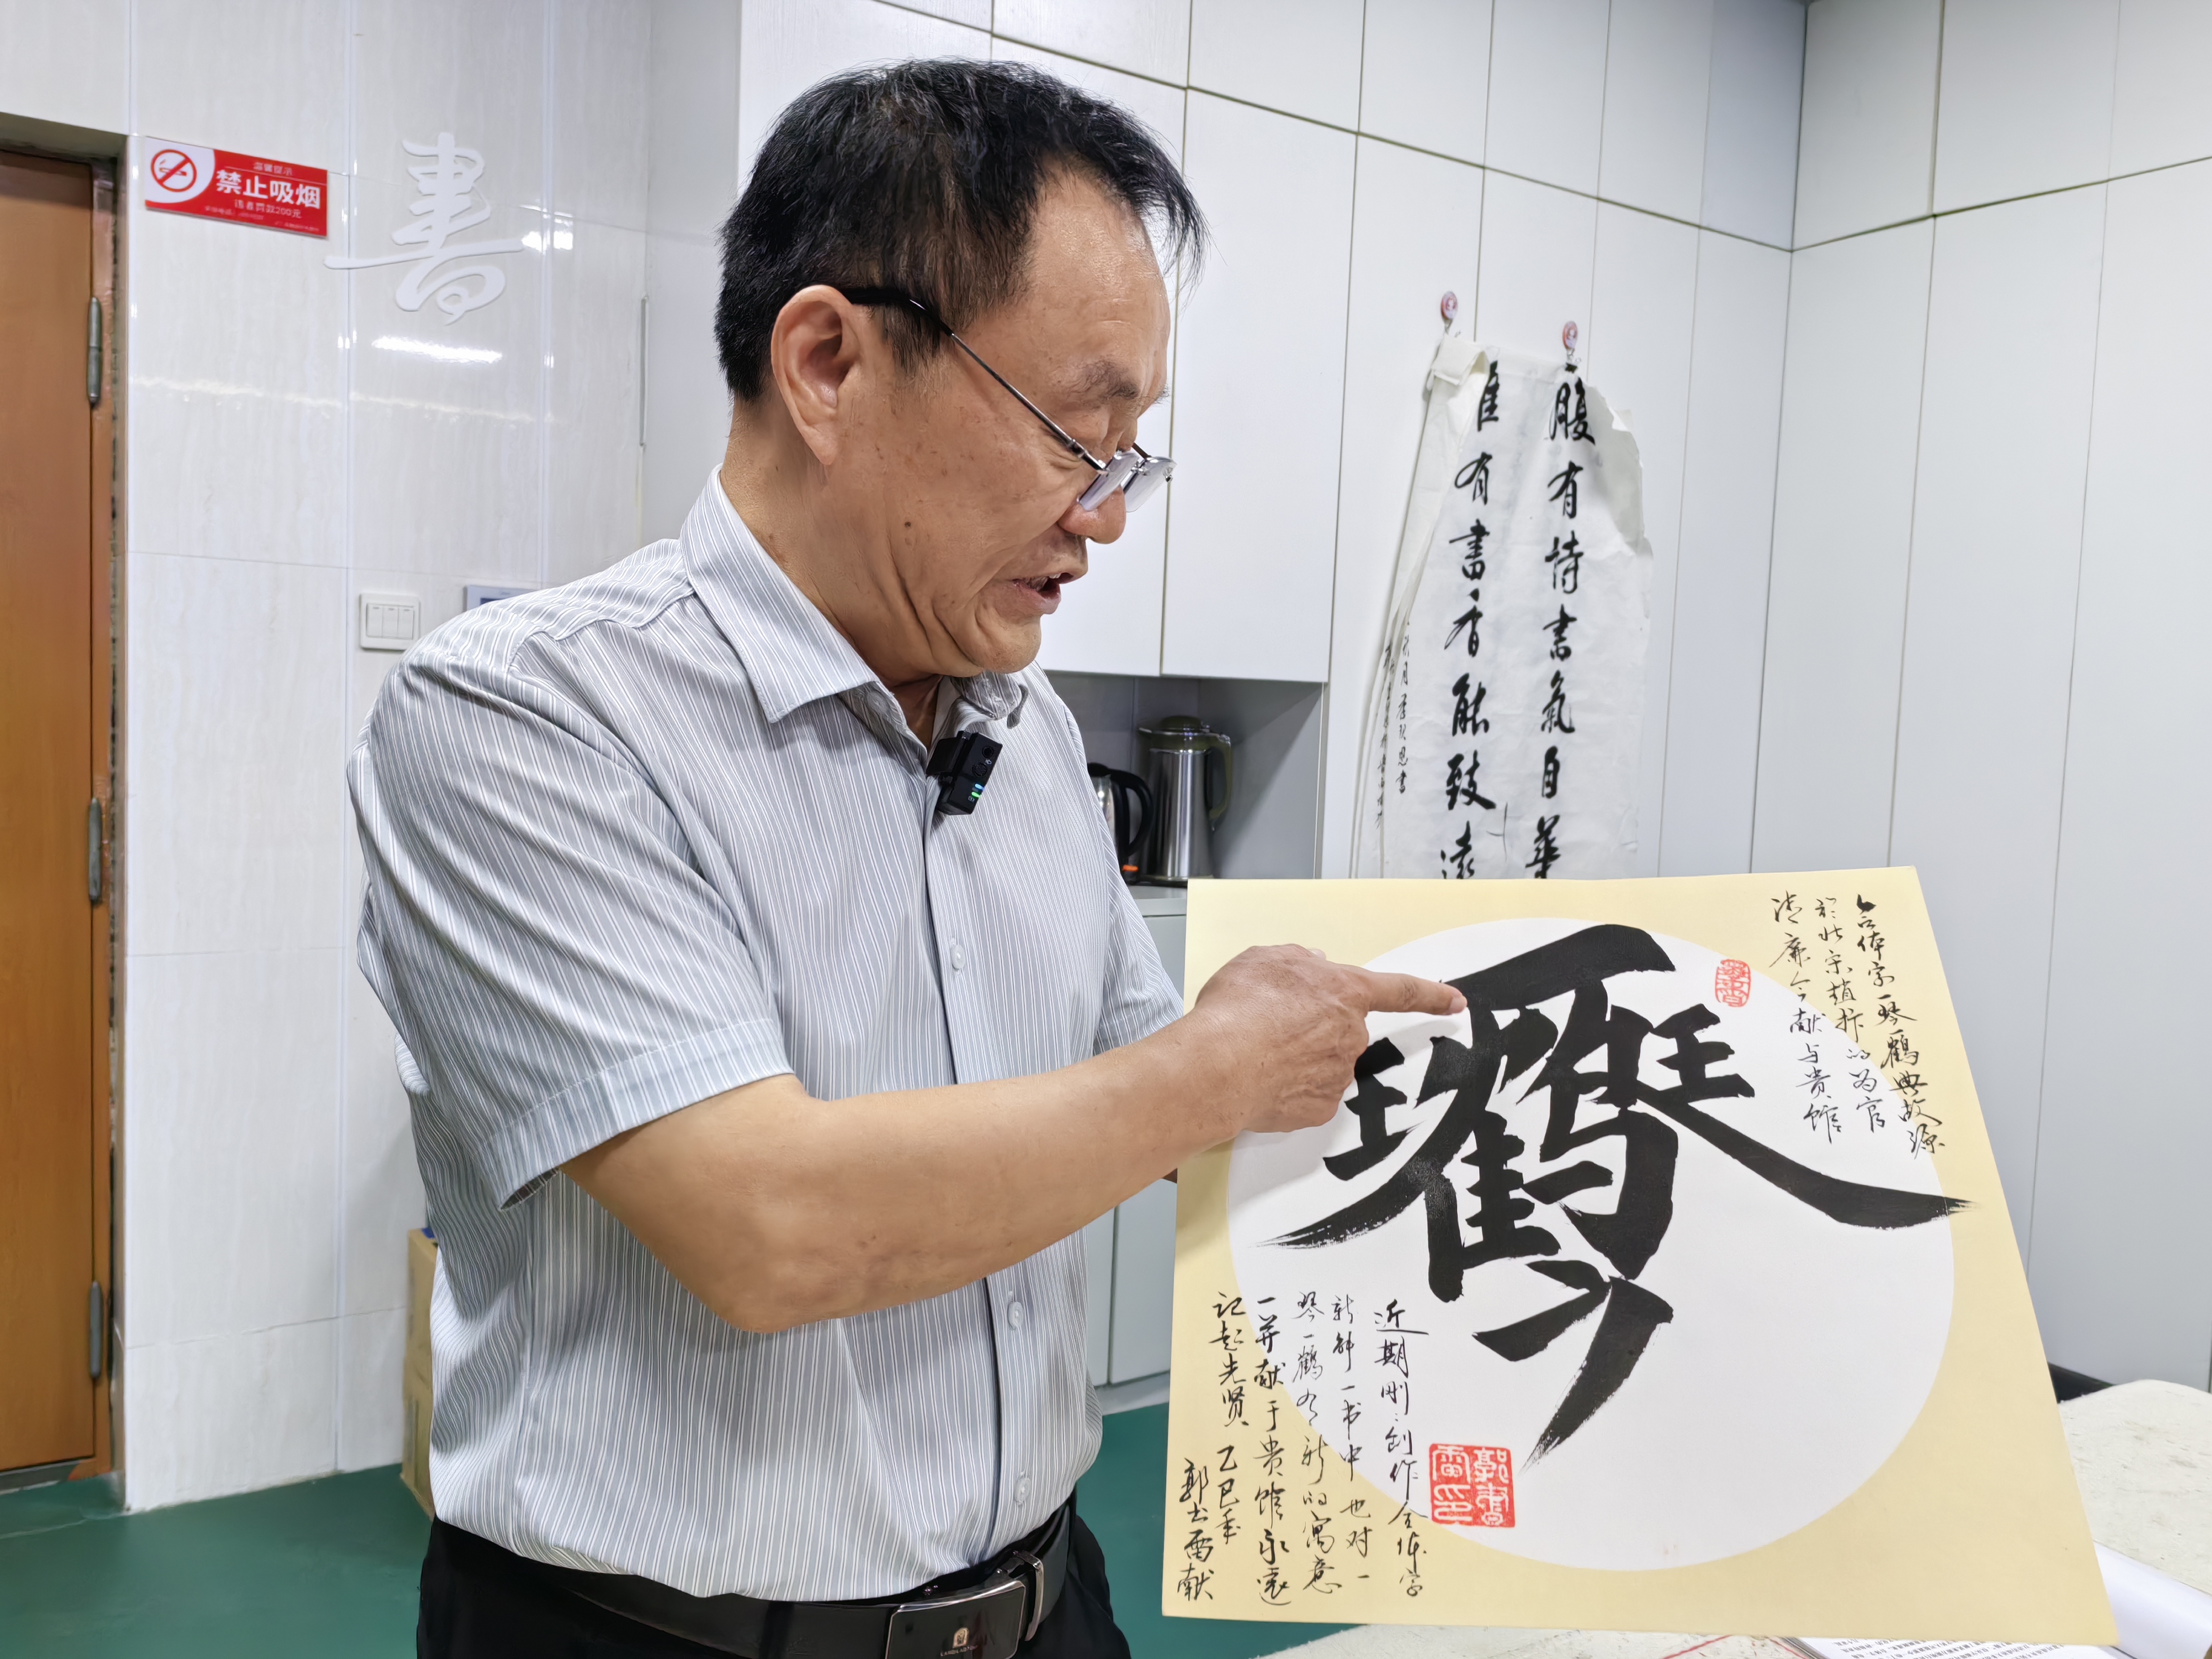 温馨提示
禁止吸烟
违者罚款200元
書
腹有诗书氣自華
惟有書香能致遠
合体字一琴一鶴典故源
於北宋趙抃的为官
清廉今献与贵馆
近期刚刚创作合体字
新解一书中也对一
琴一鶴有新的寓意
一并献于贵馆永远
记起先贤 乙巳年
郭书雷献
郭書雷印